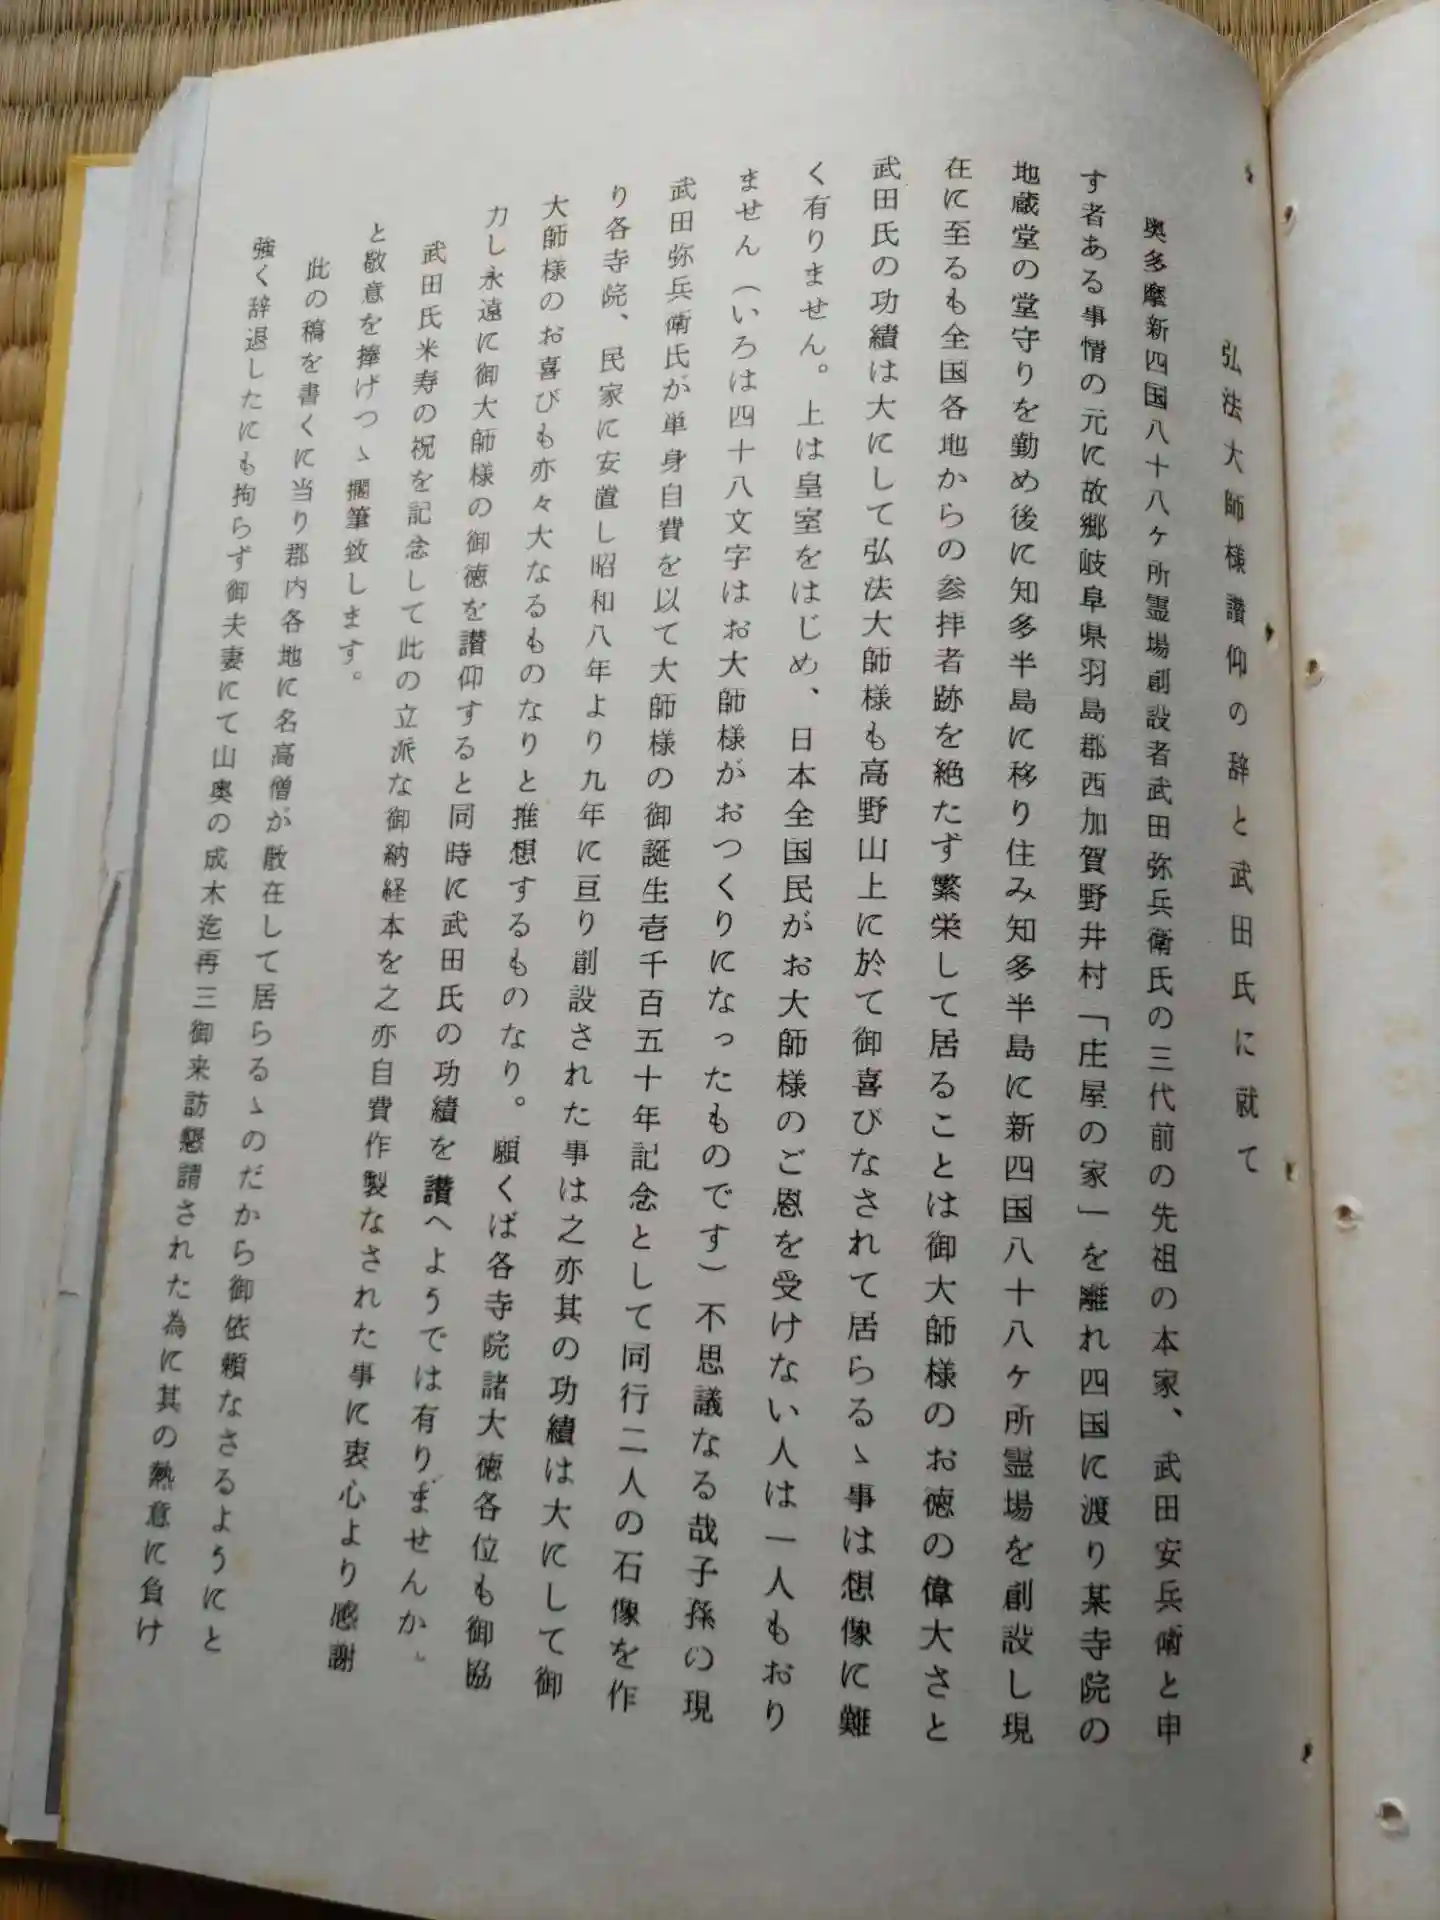 弘法大師様讃仰の辞と武田氏に就て
奥多摩新四国八十八ヶ所霊場創設者武田弥兵衛氏の三代前の先祖の本家、武田安兵衛と申
す者ある事情の元に故郷岐阜県羽島郡西加賀野井村「庄屋の家」を離れ四国に渡り某寺院の
地蔵堂の堂守りを勤め後に知多半島に移り住み知多半島に新四国八十八ヶ所霊場を創設し現
在に至るも全国各地からの参拝者跡を絶たず繁栄して居ることは御大師様のお徳の偉大さと
武田氏の功績は大にして弘法大師様も高野山上に於て御喜びなされて居らるゝ事は想像に難
く有りません。上は皇室をはじめ、日本全国民がお大師様のご恩を受けない人は一人もおり
ません(いろは四十八文字はお大師様がおつくりになったものです)不思議なる哉子孫の現
武田弥兵衛氏が単身自費を以て大師様の御誕生壱千百五十年記念として同行二人の石像を作
り各寺院、民家に安置し昭和八年より九年に亘り創設された事は之亦其の功績は大にして御
大師様のお喜びも亦々大なるものなりと推想するものなり。願くば各寺院諸大徳各位も御協
力し永遠に御大師様の御徳を讃仰すると同時に武田氏の功績を讃へようでは有りませんか。
武田氏米寿の祝を記念して此の立派な御納経本を之亦自費作製なされた事に衷心より感謝
と敬意を捧げつゝ擱筆致します。
此の稿を書くに当り郡内各地に名高僧が散在して居らるゝのだから御依頼なさるようにと
強く辞退したにも拘らず御夫妻にて山奥の成木迄再三御来訪懇請された為に其の熱意に負け